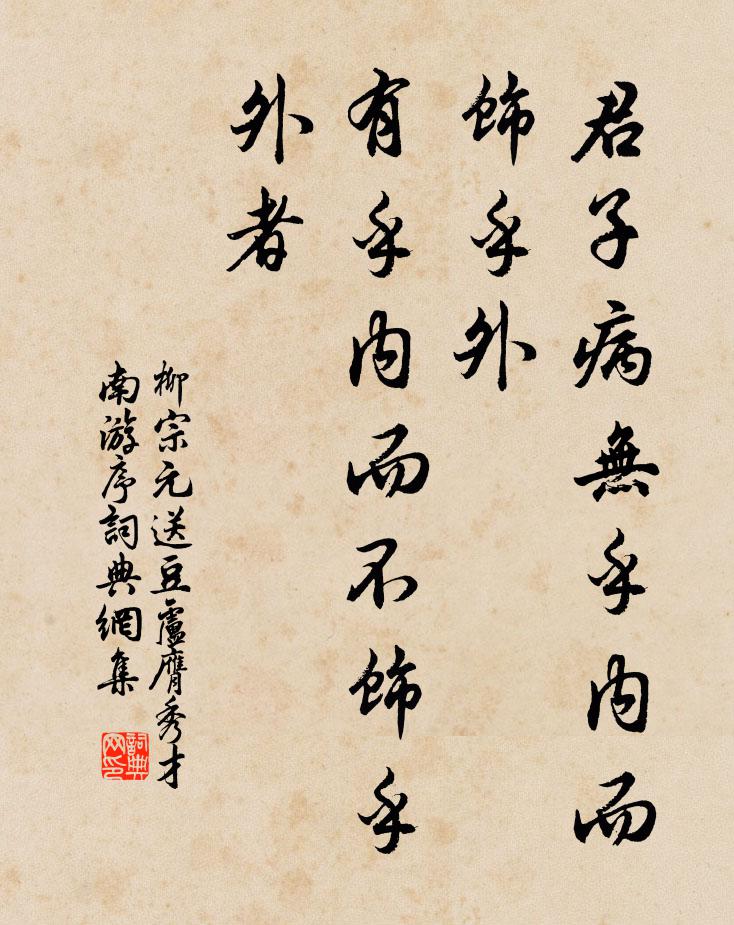 君子病無乎內而
飾乎外
有乎內而不飾乎
外者
柳宗元送豆盧膺秀才
南游序詞典網集
詞典
网印